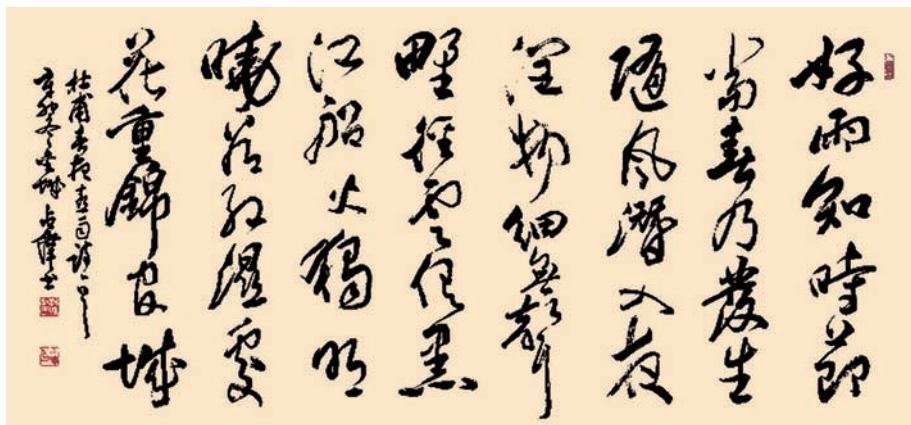 好雨知時節
當春乃發生
隨風潛入夜
潤物細無聲
野徑雲俱黑
江船火獨明
曉看紅濕處
花重錦官城
杜甫春夜喜雨詩一首
辛卯冬 城 書